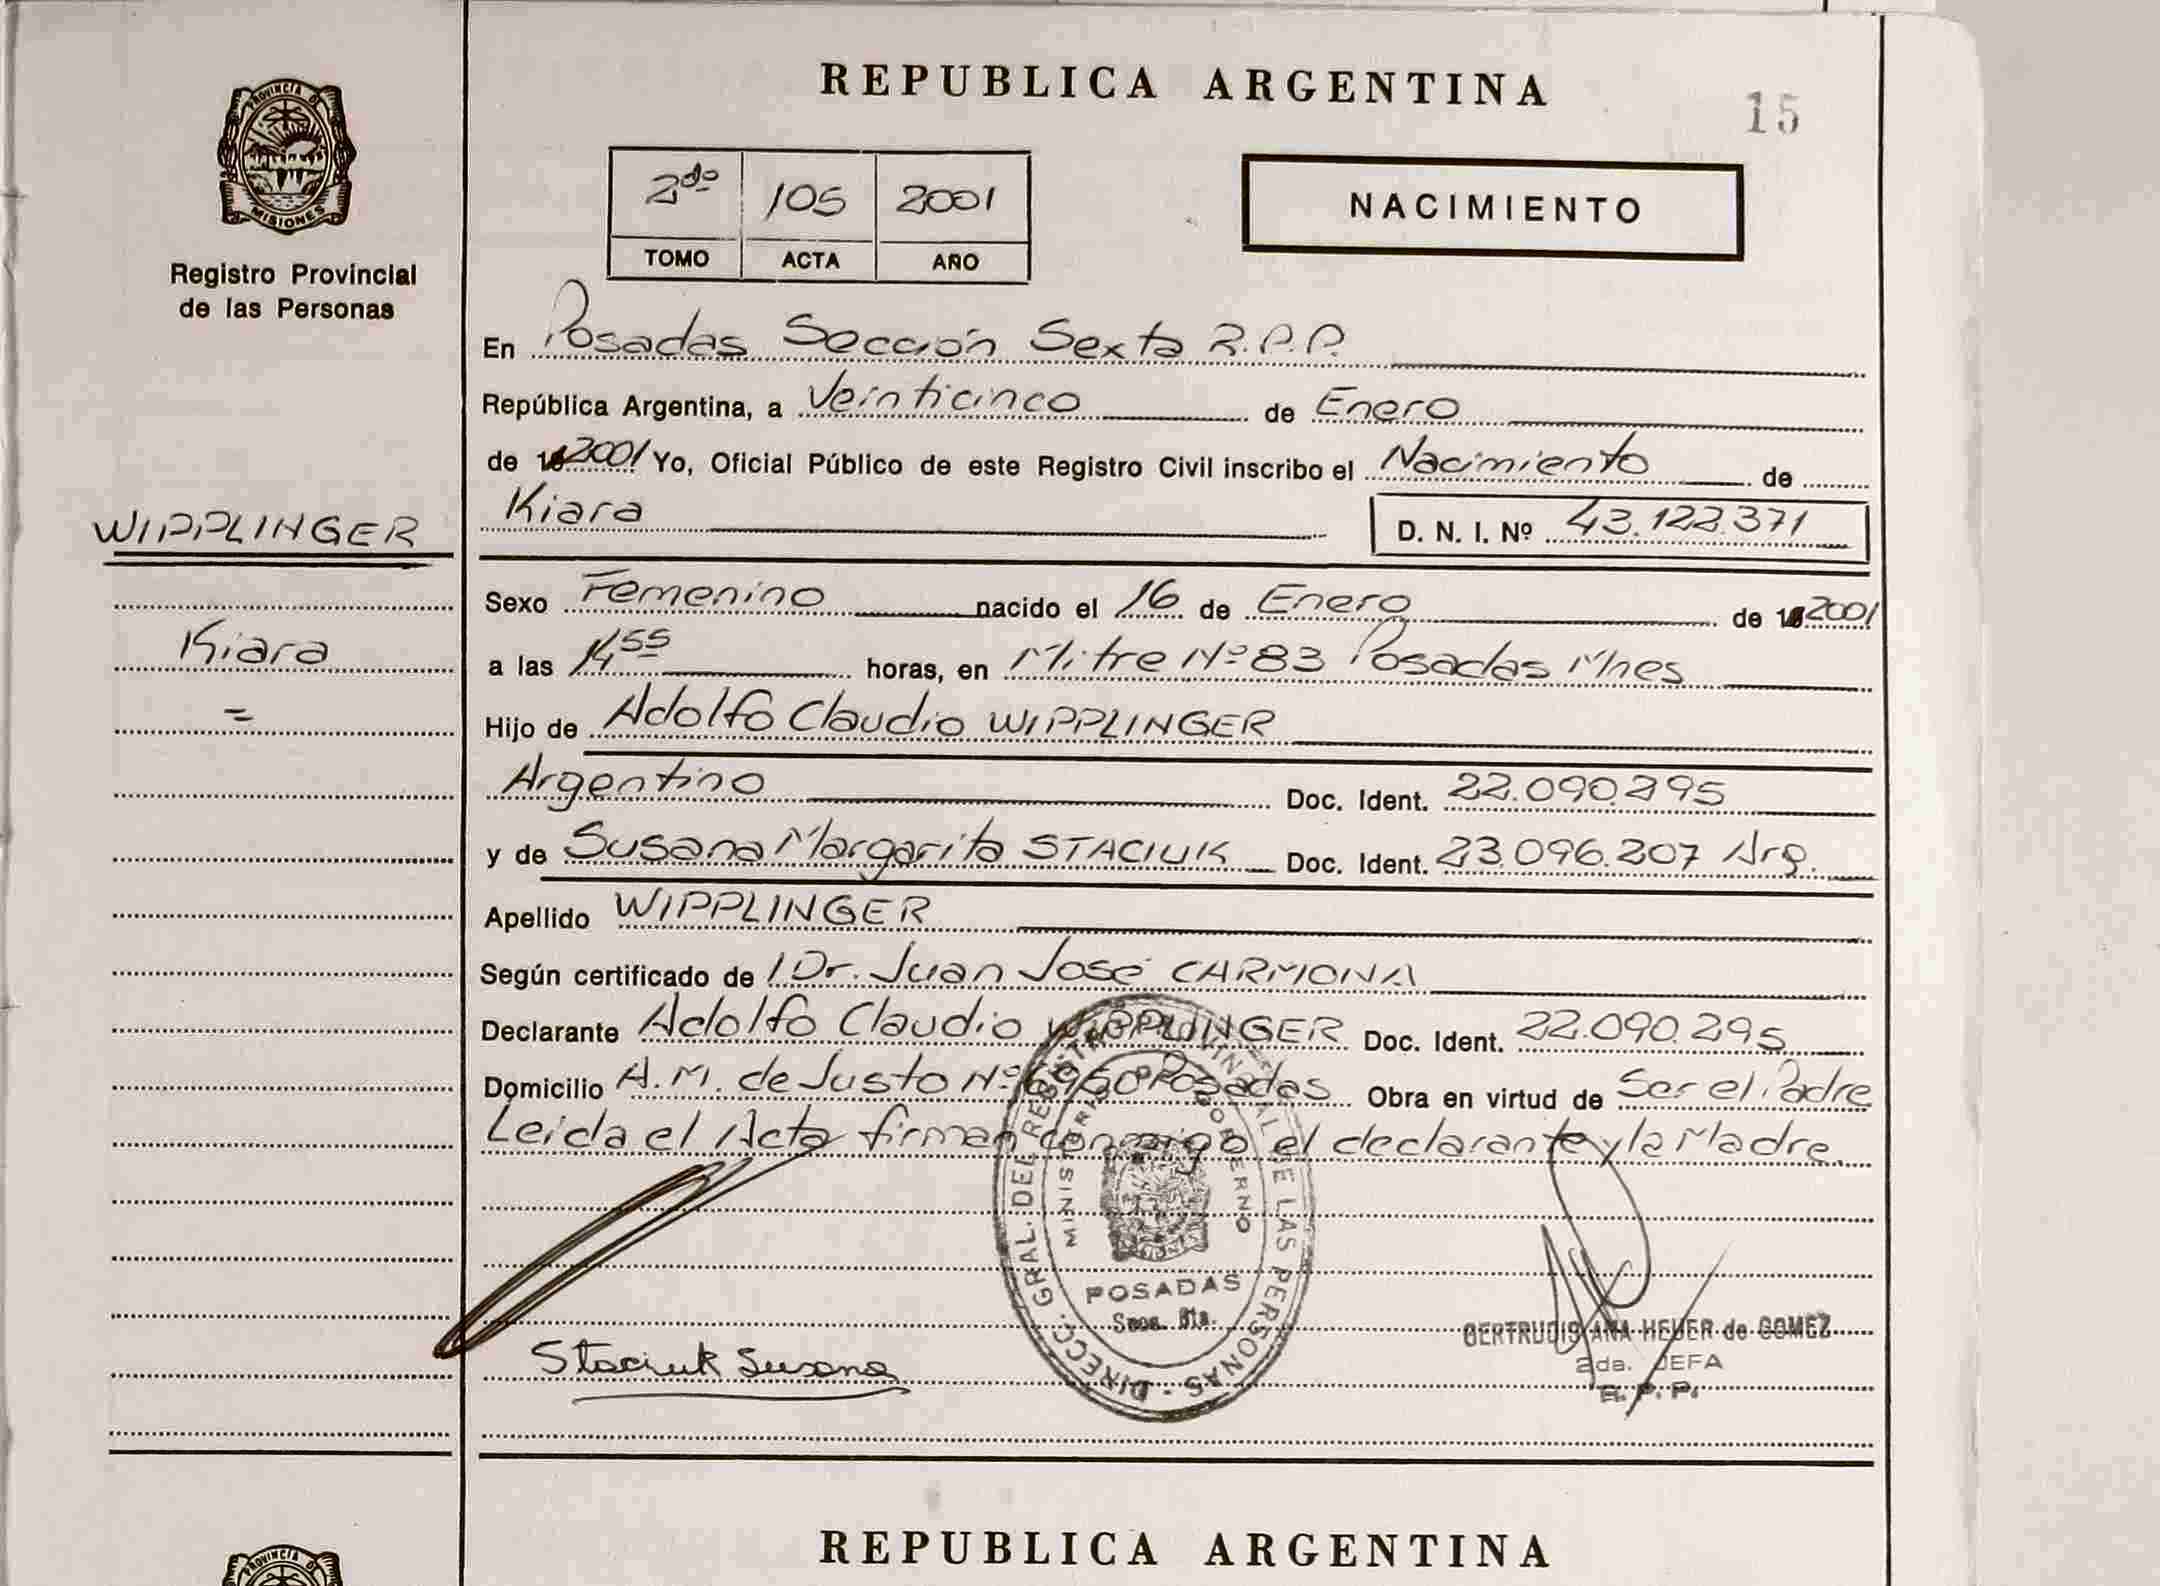 REPUBLICA ARGENTINA
15
PROVINCIA DE
MISIONES
Registro Provincial
de las Personas
2do 105 2001
TOMO ACTA AÑO
NACIMIENTO
En Posadas Sección Sexta R.P.P.
República Argentina, a Veinticinco de Enero
de 2001 Yo, Oficial Público de este Registro Civil inscribo el Nacimiento de
Kiara D. N. I. Nº 43.122.371
WIPPLINGER
Kiara
Sexo Femenino nacido el 16 de Enero de 2001
a las 14 55 horas, en Mitre Nº 83 Posadas Mnes
Hijo de Adolfo Claudio WIPPLINGER
Argentino Doc. Ident. 22.090.295
y de Susana Margarita STACIUK Doc. Ident. 23.096.207 Arg.
Apellido WIPPLINGER
Según certificado de 1 Dr. Juan José CARMONA
Declarante Adolfo Claudio WIPPLINGER Doc. Ident. 22.090.295
Domicilio A.M. de Justo Nº 6960 Posadas Obra en virtud de Ser el Padre
Leida el Acta firman conmigo el declarante y la Madre.
DIRECC. GRAL. DEL REGISTRO PROVINCIAL DE LAS PERSONAS
MINISTERIO DE GOBIERNO
POSADAS
Secc. 6ta.
Staciuk Susana
GERTRUDIS ANA HEUER de GOMEZ
2da. JEFA
R. P. P.
REPUBLICA ARGENTINA
PROVINCIA DE